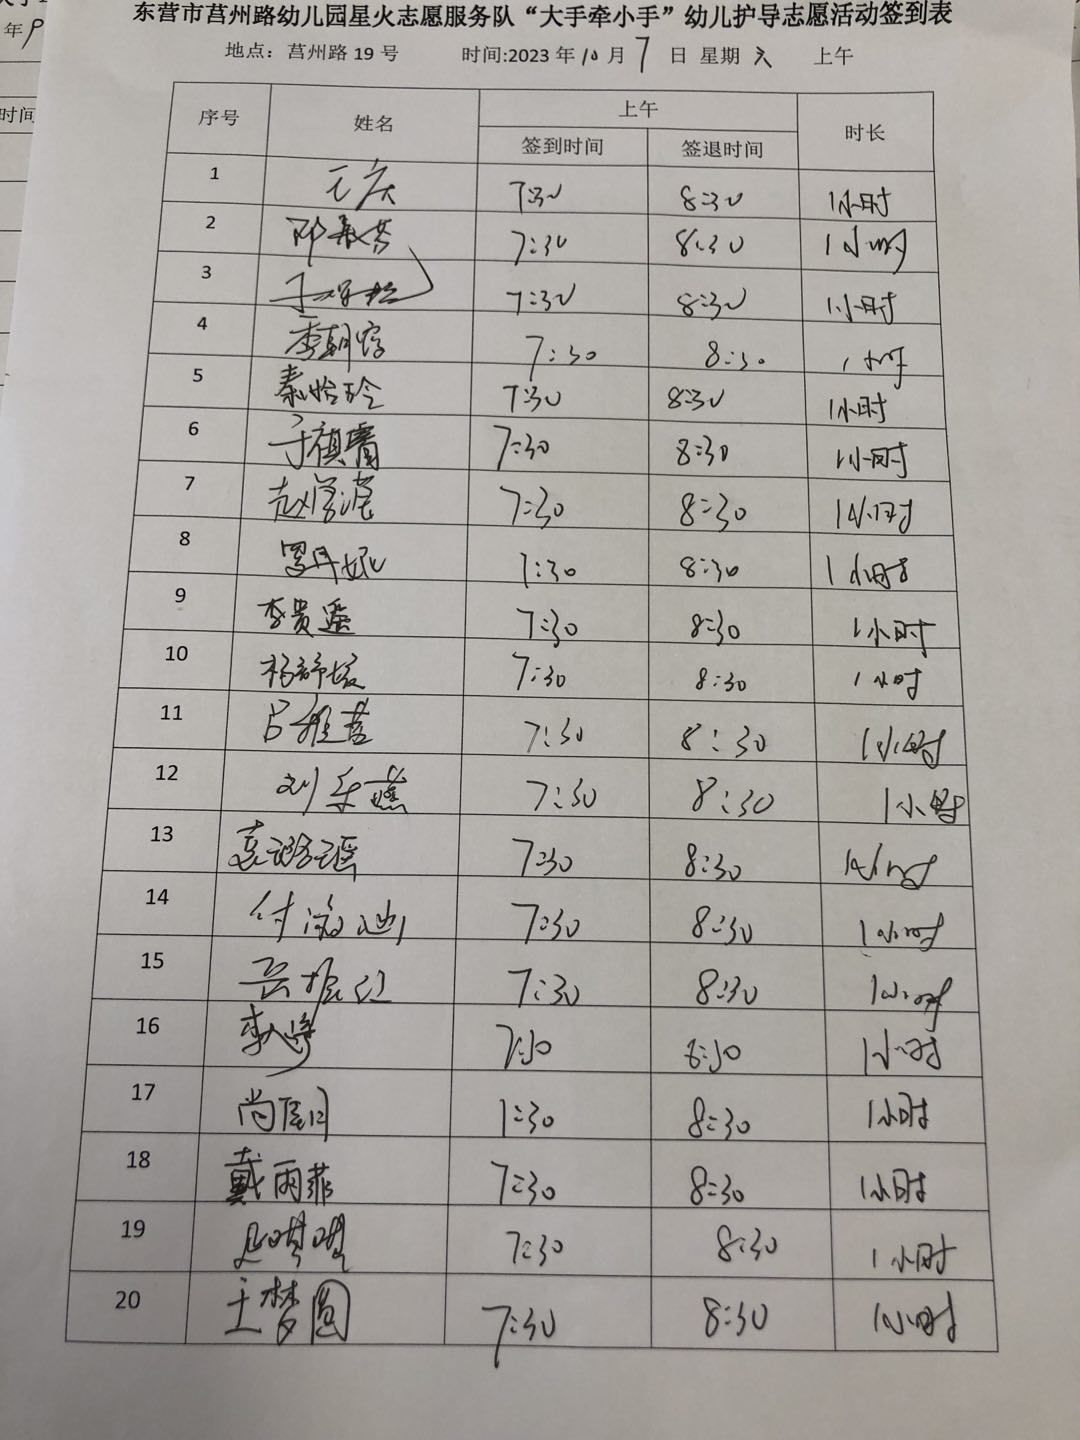 东营市莒州路幼儿园星火志愿服务队“大手牵小手”幼儿护导志愿活动签到表
年9
地点：莒州路 19 号 时间:2023 年 10 月 7 日 星期 六 上午
时间
序号 姓名 上午 时长
签到时间 签退时间
1 7:30 8:30 1小时
2 7:30 8:30 1小时
3 7:30 8:30 1小时
4 7:30 8:30 1小时
5 秦怡玲 7:30 8:30 1小时
6 于祺霄 7:30 8:30 1小时
7 7:30 8:30 1小时
8 罗丹妮 7:30 8:30 1小时
9 李贵遥 7:30 8:30 1小时
10 7:30 8:30 1小时
11 7:30 8:30 1小时
12 刘乐燕 7:30 8:30 1小时
13 7:30 8:30 1小时
14 7:30 8:30 1小时
15 7:30 8:30 1小时
16 7:30 8:30 1小时
17 1:30 8:30 1小时
18 戴雨菲 7:30 8:30 1小时
19 7:30 8:30 1小时
20 王梦圆 7:30 8:30 1小时